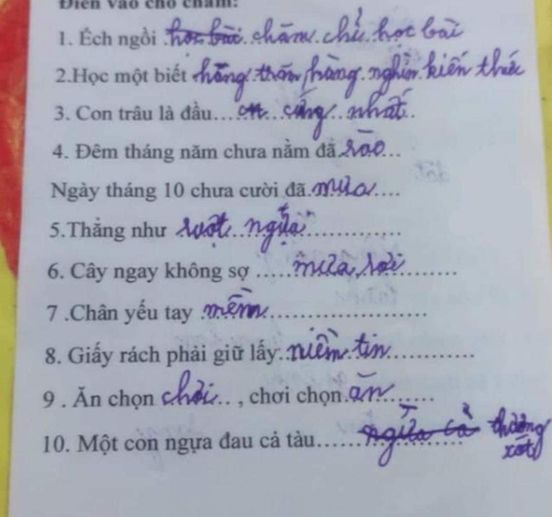 Điền vào chỗ chấm:
1. Ếch ngồi học bài chăm chỉ học bài
2.Học một biết hàng trăm hàng nghìn kiến thức
3. Con trâu là đầu... cứng nhất..
4. Đêm tháng năm chưa nằm đã rào...
Ngày tháng 10 chưa cười đã mưa....
5.Thẳng như ruột ngựa
6. Cây ngay không sợ ..... mưa rơi........
7 .Chân yếu tay mềm......................
8. Giấy rách phải giữ lấy. niềm tin............
9 . Ăn chọn chơi.. , chơi chọn ăn......
10. Một con ngựa đau cả tàu...... ngựa cả thương xót